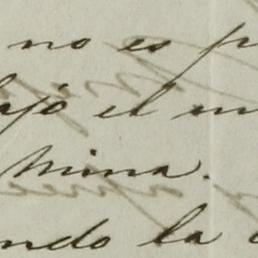 no es p
ajó el m
Mina.
ando la